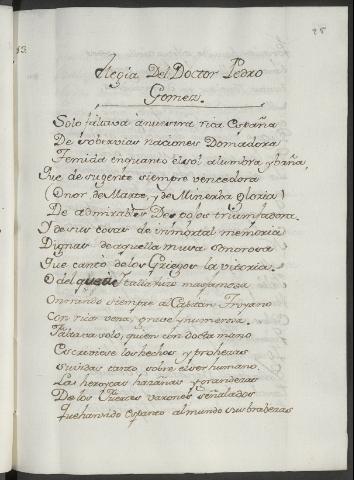 25
13
Elegia Del Doctor Pedro
Gomez.
Solo faltava â nuestra rica España
De sobervias naciones Domadora
Temida enquanto el sol alumbra y baña,
Que de su gente siempre vencedora
(Onor de Marte, y de Minerba gloria)
De admirables Despojos triumfadora.
Y de sus cosas de inmortal memoria
Dignas de aquella musa sonorosa
Que canto de los Griegos la vitoria.
O del que en Italia fue mas famosa
Onrando siempre al Capitan Troyano
Con rica vena, grave y numerosa.
Faltava solo, quien con docta mano
Escriviese los hechos, y prohezas
suvidas tanto, sobre el ser humano.
Las heroycas hazañas y grandezas
De los Fuertes varones señalados
Que han sido espanto al mundo sus brabezas